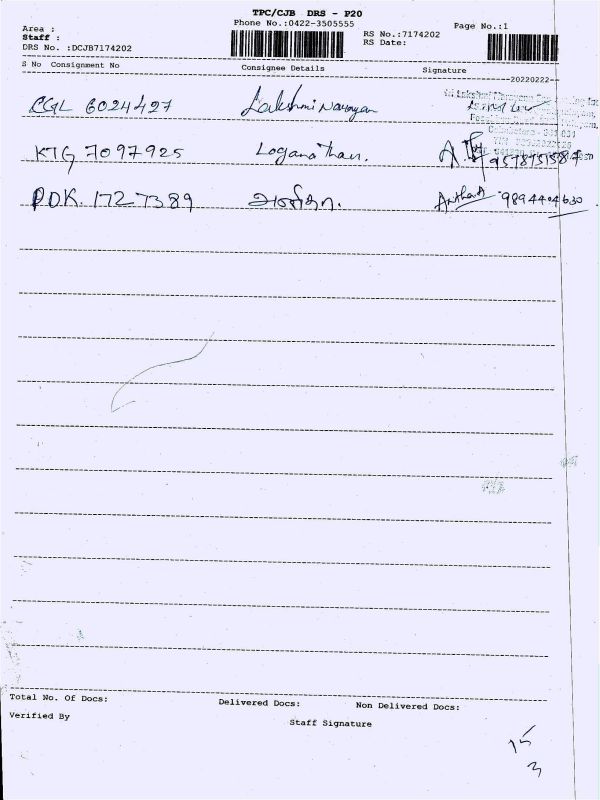 TPC/CJB DRS - P20
Phone No.:0422-3505555
Page No.:1
Area :
Staff :
DRS No. :DCJB7174202
RS No.:7174202
RS Date:
S No Consignment No Consignee Details Signature
--20220222--
CGL 6024497 Lakshmi Narayan
KTG 7097925 Loganathan.
PDK. 1727389 9894404630
Total No. Of Docs: Delivered Docs: Non Delivered Docs:
Verified By Staff Signature
15
3